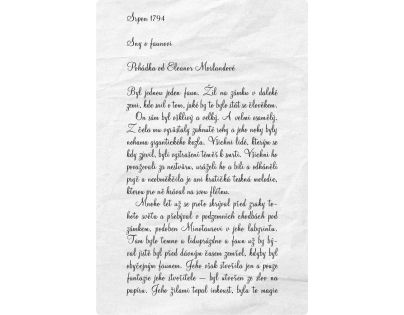 Srpen 1794
Sny o faunovi
Pohádka od Eleanor Morlandové
Byl jednou jeden faun. Žil na zámku v daleké
zemi, kde snil o tom, jaké by to bylo stát se člověkem.
On sám byl ošklivý a velký. A velmi osamělý.
Z čela mu vyrůstaly zahnuté rohy a jeho nohy byly
nohama gigantického kozla. Všichni lidé, kterým se
kdy zjevil, byli vystrašeni téměř k smrti. Všichni ho
považovali za nestvůru, uráželi ho a bili a odháněli
pryč a neobměkčila je ani kratičká teskná melodie,
kterou pro ně hrával na svou flétnu.
Mnoho let už se proto skrýval před zraky to-
hoto světa a přebýval v podzemních chodbách pod
zámkem, podoben Minotaurovi v jeho labyrintu.
Tam bylo temno a liduprázdno a faun už by bý-
val jistě byl před dávným časem zemřel, kdyby byl
obyčejným faunem. Jeho však stvořila jen a pouze
fantazie jeho stvořitele — byl utvořen ze slov na
papíru. Jeho žilami tepal inkoust, byla to magie